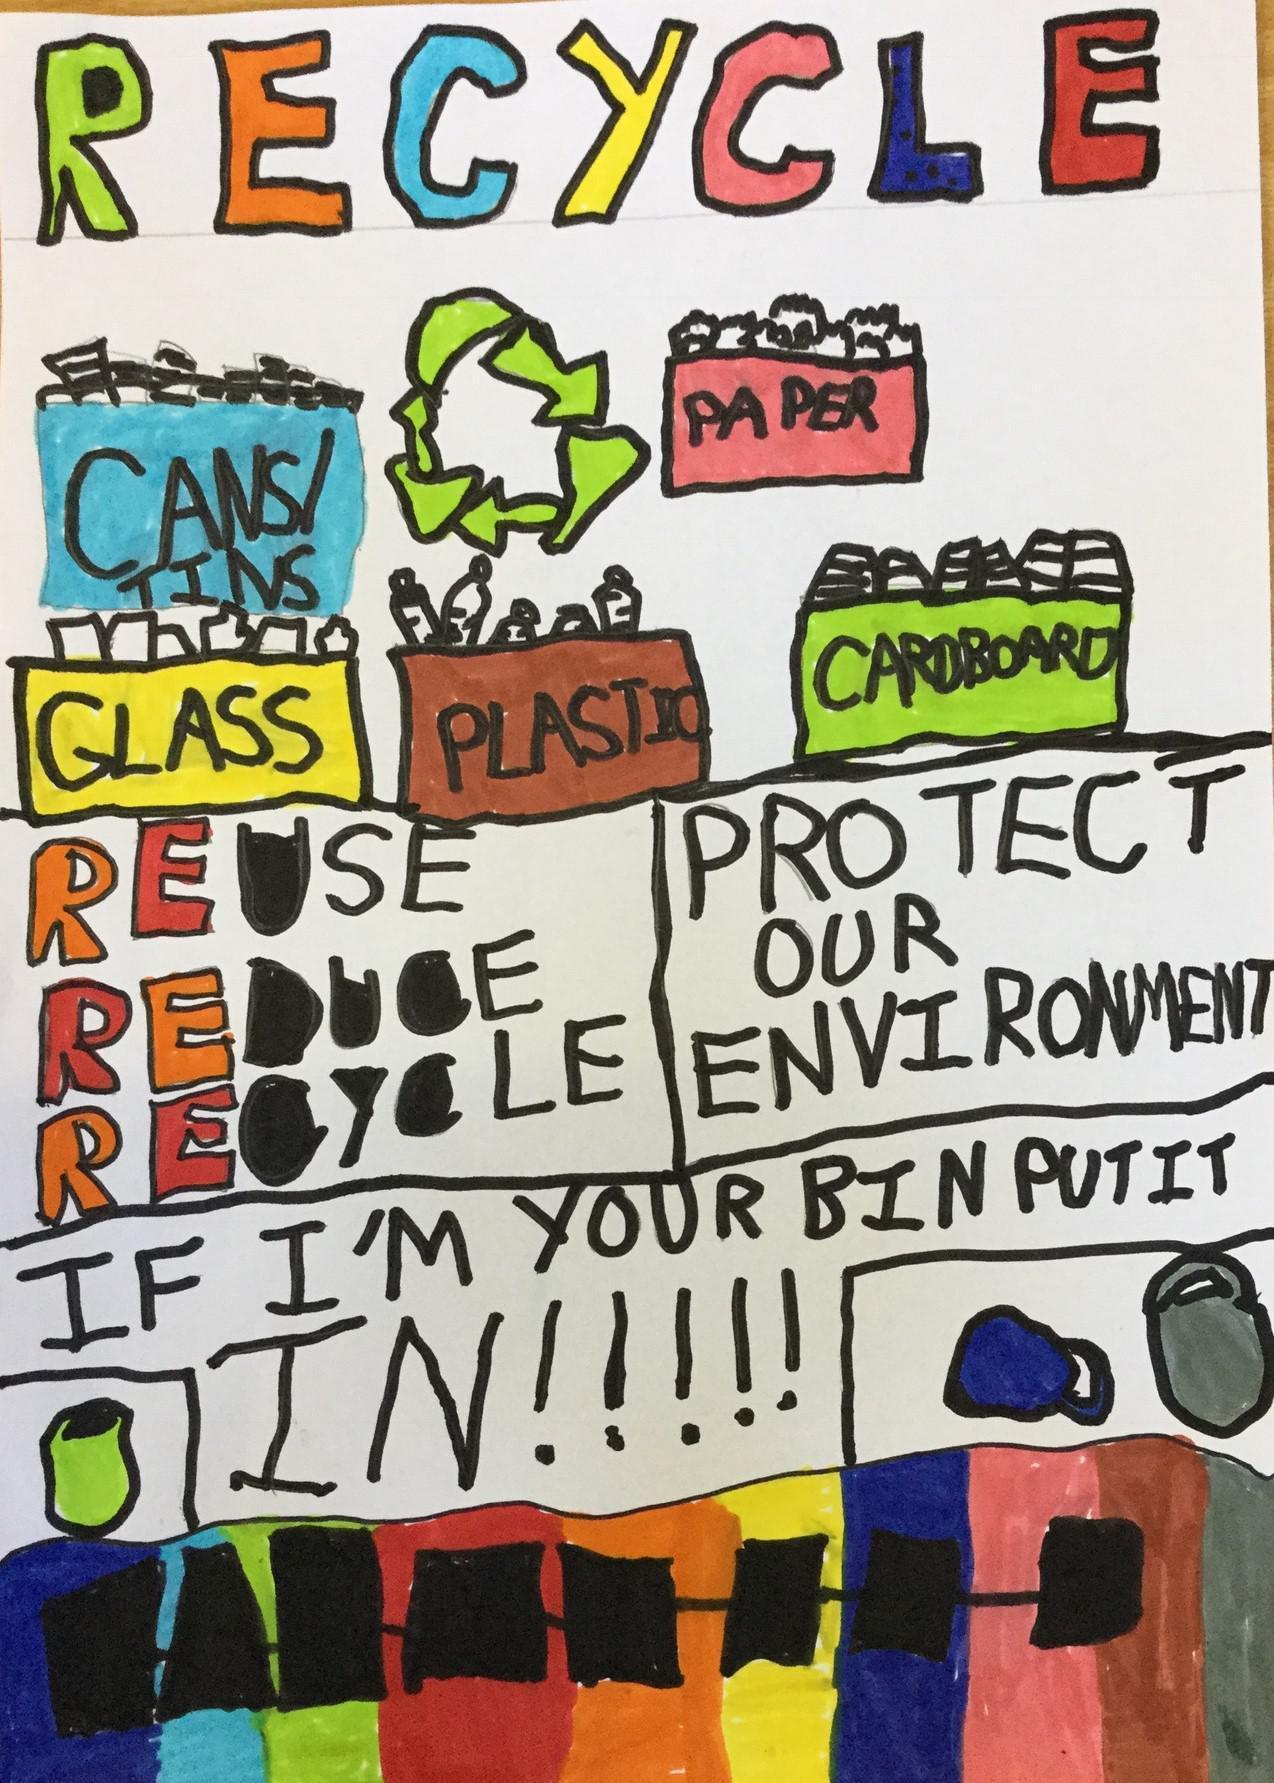 RECYCLE
CANS/
TINS
PAPER
GLASS
PLASTIC
CARDBOARD
REUSE
REDUCE
RECYCLE
PROTECT
OUR
ENVIRONMENT
IF I'M YOUR BIN PUT IT
IN!!!!!